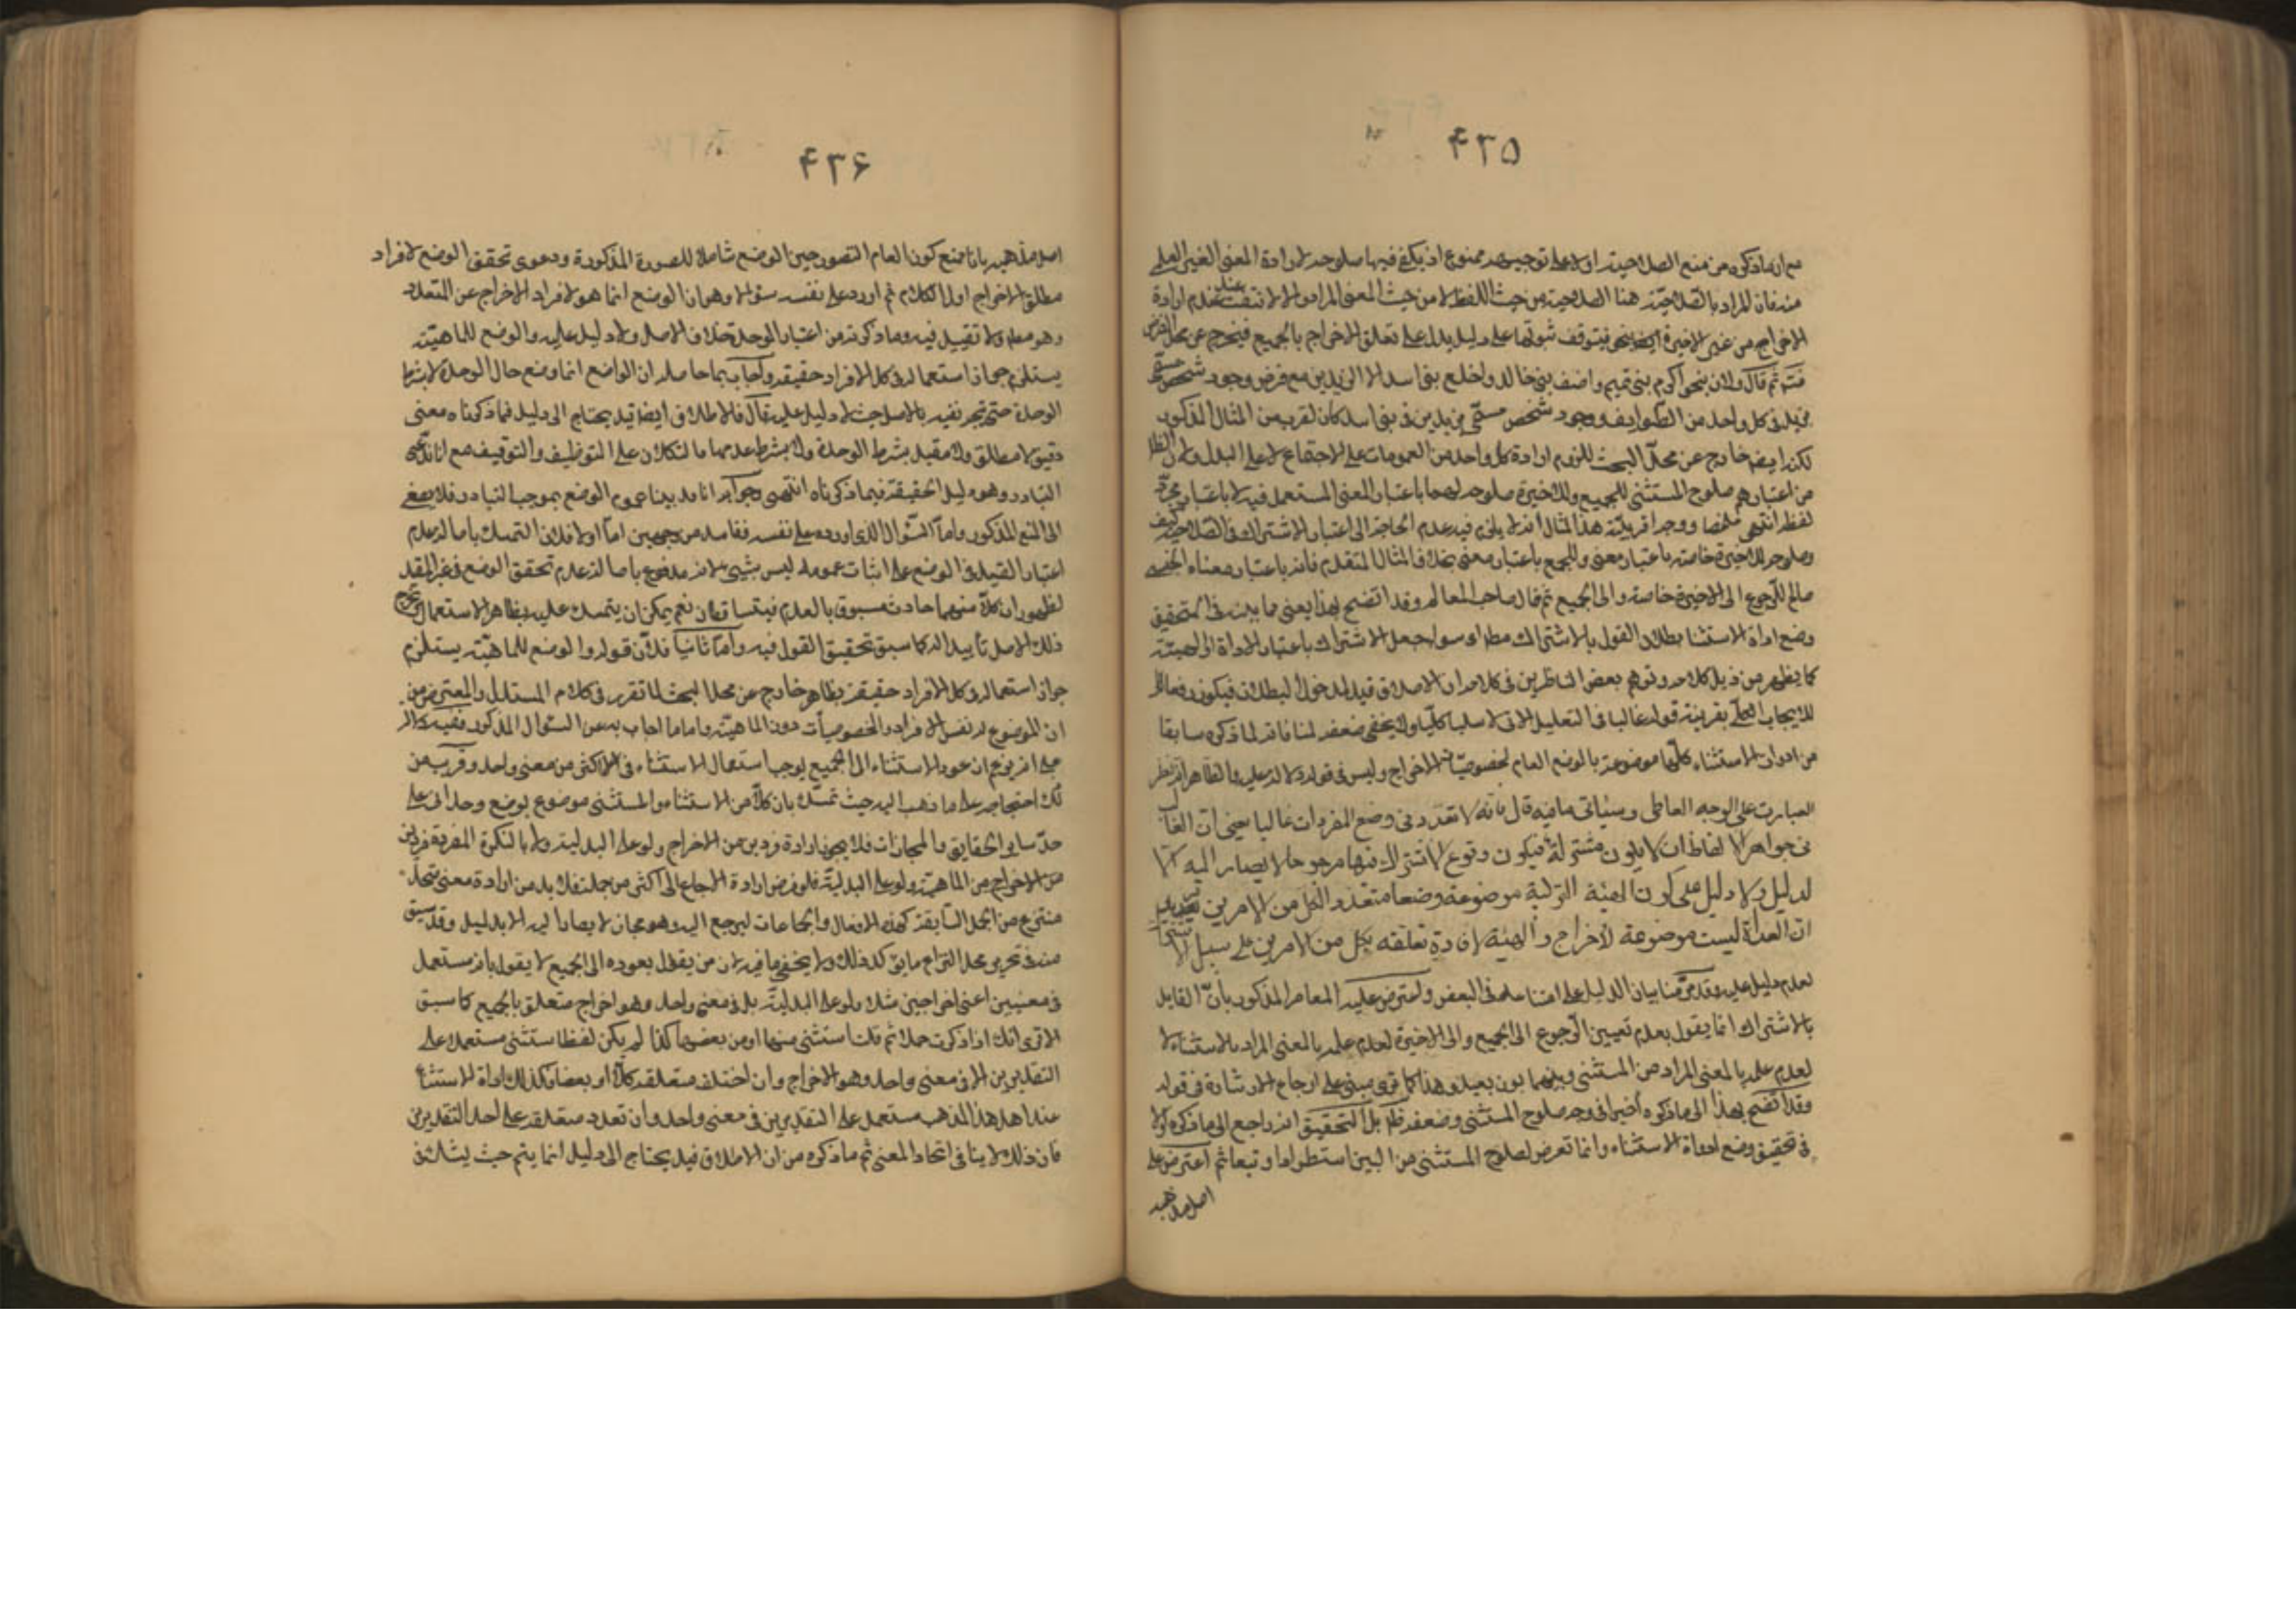 ۴۳۵
مع ان ماذكره من منع الصلاحية اولا على توجيهه ممنوع اذ يكفى فيها صلوحه لارادة المعنى الغير العلمى
منه فان المراد بالصلاحية هنا الصلاحية من حيث اللفظ لا من حيث المعنى المراد والا لانتفت عند عدم ارادة
الاخراج من غير الاخيرة ايضا فيتوقف ثبوتها على دليل يدل على تعلق الاخراج بالجميع فيخرج عن محل الفرض
ثم قال ولان نحو اكرم بنى تميم واضف بنى خالد واخلع بنى اسد الا الزيدين مع فرض وجود شخص مسمى
بزيد فى كل واحد من الطوايف ووجود شخص مسمى بزيدين فى بنى اسد كان لقرب من المثال المذكور
لكنه ايضا خارج عن محل البحث للزوم ارادة كل واحد من العمومات على الاجتماع لا على البدل ولان الظ
من اعتبارهم صلوح المستثنى للجميع وللاخيرة صلوحه لهما باعتبار المعنى المستعمل فيه لا باعتبار مجرد
لفظه انتهى ملخصا ووجه اقربية هذا المثال انه لا يلزم فيه عدم الحاجة الى اعتبار الاشتراك فى الصلاحية كيف
وصلوحه للاخيرة خاصة باعتبار معنى وللجميع باعتبار معنى بخلاف المثال المتقدم فانه باعتبار معناه الجنسى
صالح للرجوع الى الاخيرة خاصة والى الجميع ثم قال صاحب المعالم وقد اتضح بهذا يعنى ما بينه فى تحقيق
وضع اداة الاستثناء بطلان القول بالاشتراك مطلقا سواء جعل الاشتراك باعتبار الاداة او الهيئة
كما يظهر من ذيل كلامه وتوهم بعض الناظرين فى كلامه ان الاطلاق قيد لمدخول البطلان فيكون رفعا
للايجاب الكلى بقرينة قوله غالبا فى التعليل الاتى لا سلبا كليا ولا يخفى ضعفه لمنافاته لما ذكره سابقا
من ادوات الاستثناء كلها موضوعة بالوضع العام لخصوصيات الاخراج وليس فى قوله دلالة عليه والظاهر انه نظر
العبارت على الوجه العاطى وسيأتى مافيه قال فانه لا تعدد فى وضع المفردات غالبا يعنى ان الغالب
فى جواهر الالفاظ ان لا يكون مشتركة فيكون وقوع الاشتراك فيها مرجوحا لا يصار اليه الا
لدليل ولا دليل على كون الهيئة التركيبة موضوعة وضعا متعددا لكل من الامرين
ان العداة ليست موضوعة للاخراج والهيئة لافادة تعلقه بكل من الامرين على سبيل الاشتراك
لعدم دليل عليه وقد مر منا بيان الدليل على امتناعه فى البعض واعترض عليه المعاصر المذكور بان القايل
بالاشتراك انما يقول بعدم تعيين الرجوع الى الجميع والى الاخيرة لعدم علمه بالمعنى المراد بالاستثناء لا
لعدم علمه بالمعنى المراد من المستثنى وبينهما بون بعيد وهذا كما ترى مبنى على ارجاع الاشارة فى قوله
وقد اتضح بهذا الى ما ذكره اخيرا فى وجه صلوح المستثنى وضعفه ظ بل التحقيق انه راجع الى ما ذكره اولا
فى تحقيق وضع اداة الاستثناء وانما تعرض لصلوح المستثنى من البين استطرادا وتبعا ثم اعترض على
اصل مذهبه
۴۳۶
اصل مذهبه بانا نمنع كون العام المتصور حين الوضع شاملا للصورة المذكورة ودعوى تحقق الوضع لافراد
مطلق الاخراج اول الكلام ثم اورد على نفسه سؤالا وهو ان الوضع انما هو لافراد الاخراج عن المتعدد
وهو مطلق ولا تقييد فيه وما ذكرته من اعتبار الوحدة خلاف الاصل ولا دليل عليه والوضع للماهية
يستلزم جواز استعماله فى كل الافراد حقيقة واجاب بما حاصله ان الواضع انما وضع حال الوحدة لا بشرط
الوحدة حتى تجر نفيه بالاصل حيث لا دليل عليه قال فالاطلاق ايضا قيد يحتاج الى دليل فما ذكرناه معنى
دقيق لا مطلق ولا مقيد بشرط الوحدة ولا بشرط عدمها مالتكلان على التوظيف والتوقيف مع انا ندعى
التبادر وهو دليل الحقيقة فيما ذكرناه انتهى وجوابه انا قد بينا عموم الوضع بموجب التبادر فلا يصغى
الى المنع المذكور واما السؤال الذى اورده على نفسه ففاسد من وجهين اما اولا فلان التمسك باصالة عدم
اعتبار القيد فى الوضع على اثبات عمومه ليس بشيئ لانه مدفوع باصالة عدم تحقق الوضع فى غير المقيد
لظهور ان كلا منهما حادث مسبوق بالعدم فيتساقطان نعم يمكن ان يتمسك عليه بظاهر الاستعمال ويخرج
ذلك الاصل تاييدا له كما سبق تحقيق القول فيه واما ثانيا فلان قوله والوضع للماهية يستلزم
جواز استعماله فى كل الافراد حقيقة بظاهره خارج عن محل البحث لما تقرر فى كلام المستدل والمعترض من
ان الموضوع له نفس الافراد والخصوصيات دون الماهية واما ما اجاب به عن السؤال المذكور ففيه دلالة
على انه يزعم ان عود الاستثناء الى الجميع يوجب استعمال الاستثناء فى الاكثر من معنى واحد وقريب من
ذلك احتجاجه على ما ذهب اليه حيث تمسك بان كلا من الاستثناء والمستثنى موضوع بوضع وحدانى على
حد ساير الحقايق والمجازات فلا يجوز ارادة فردين من الاخراج ولو على البدلية ولا بالنكرة المفردة فردين
من الاخراج من الماهية ولو على البدلية فلو فرض ارادة الرجاع الى اكثر من جملة فلا بد من ارادة معنى متحد
منتزع من الجمل السابقة كهذه الافعال والجماعات ليرجع اليه وهو مجاز لا يصار اليه الا بدليل وقد سبق
منه فى تحرير محل النزاع ما يؤكد ذلك ولا يخفى ما فيه لان من يقول بعوده الى الجميع لا يقول بانه مستعمل
فى معنيين اعنى اخراجين مثلا ولو على البدلية بل فى معنى واحد وهو اخراج متعلق بالجميع كما سبق
الا ترى انك اذا ذكرت جملا ثم قلت استثنى منها او من بعضها كذا لم يكن لفظ استثنى مستعملا على
التقديرين الا فى معنى واحد وهو الاخراج وان اختلف متعلقه كلا او بعضا فكذلك اداة الاستثناء
عند اهل هذا المذهب مستعمل على التقديرين فى معنى واحد وان تعدد متعلقه على احد التقديرين
فان ذلك لا ينافى اتحاد المعنى ثم ما ذكره من ان الاطلاق قيد يحتاج الى دليل انما يتم حيث يشك فى